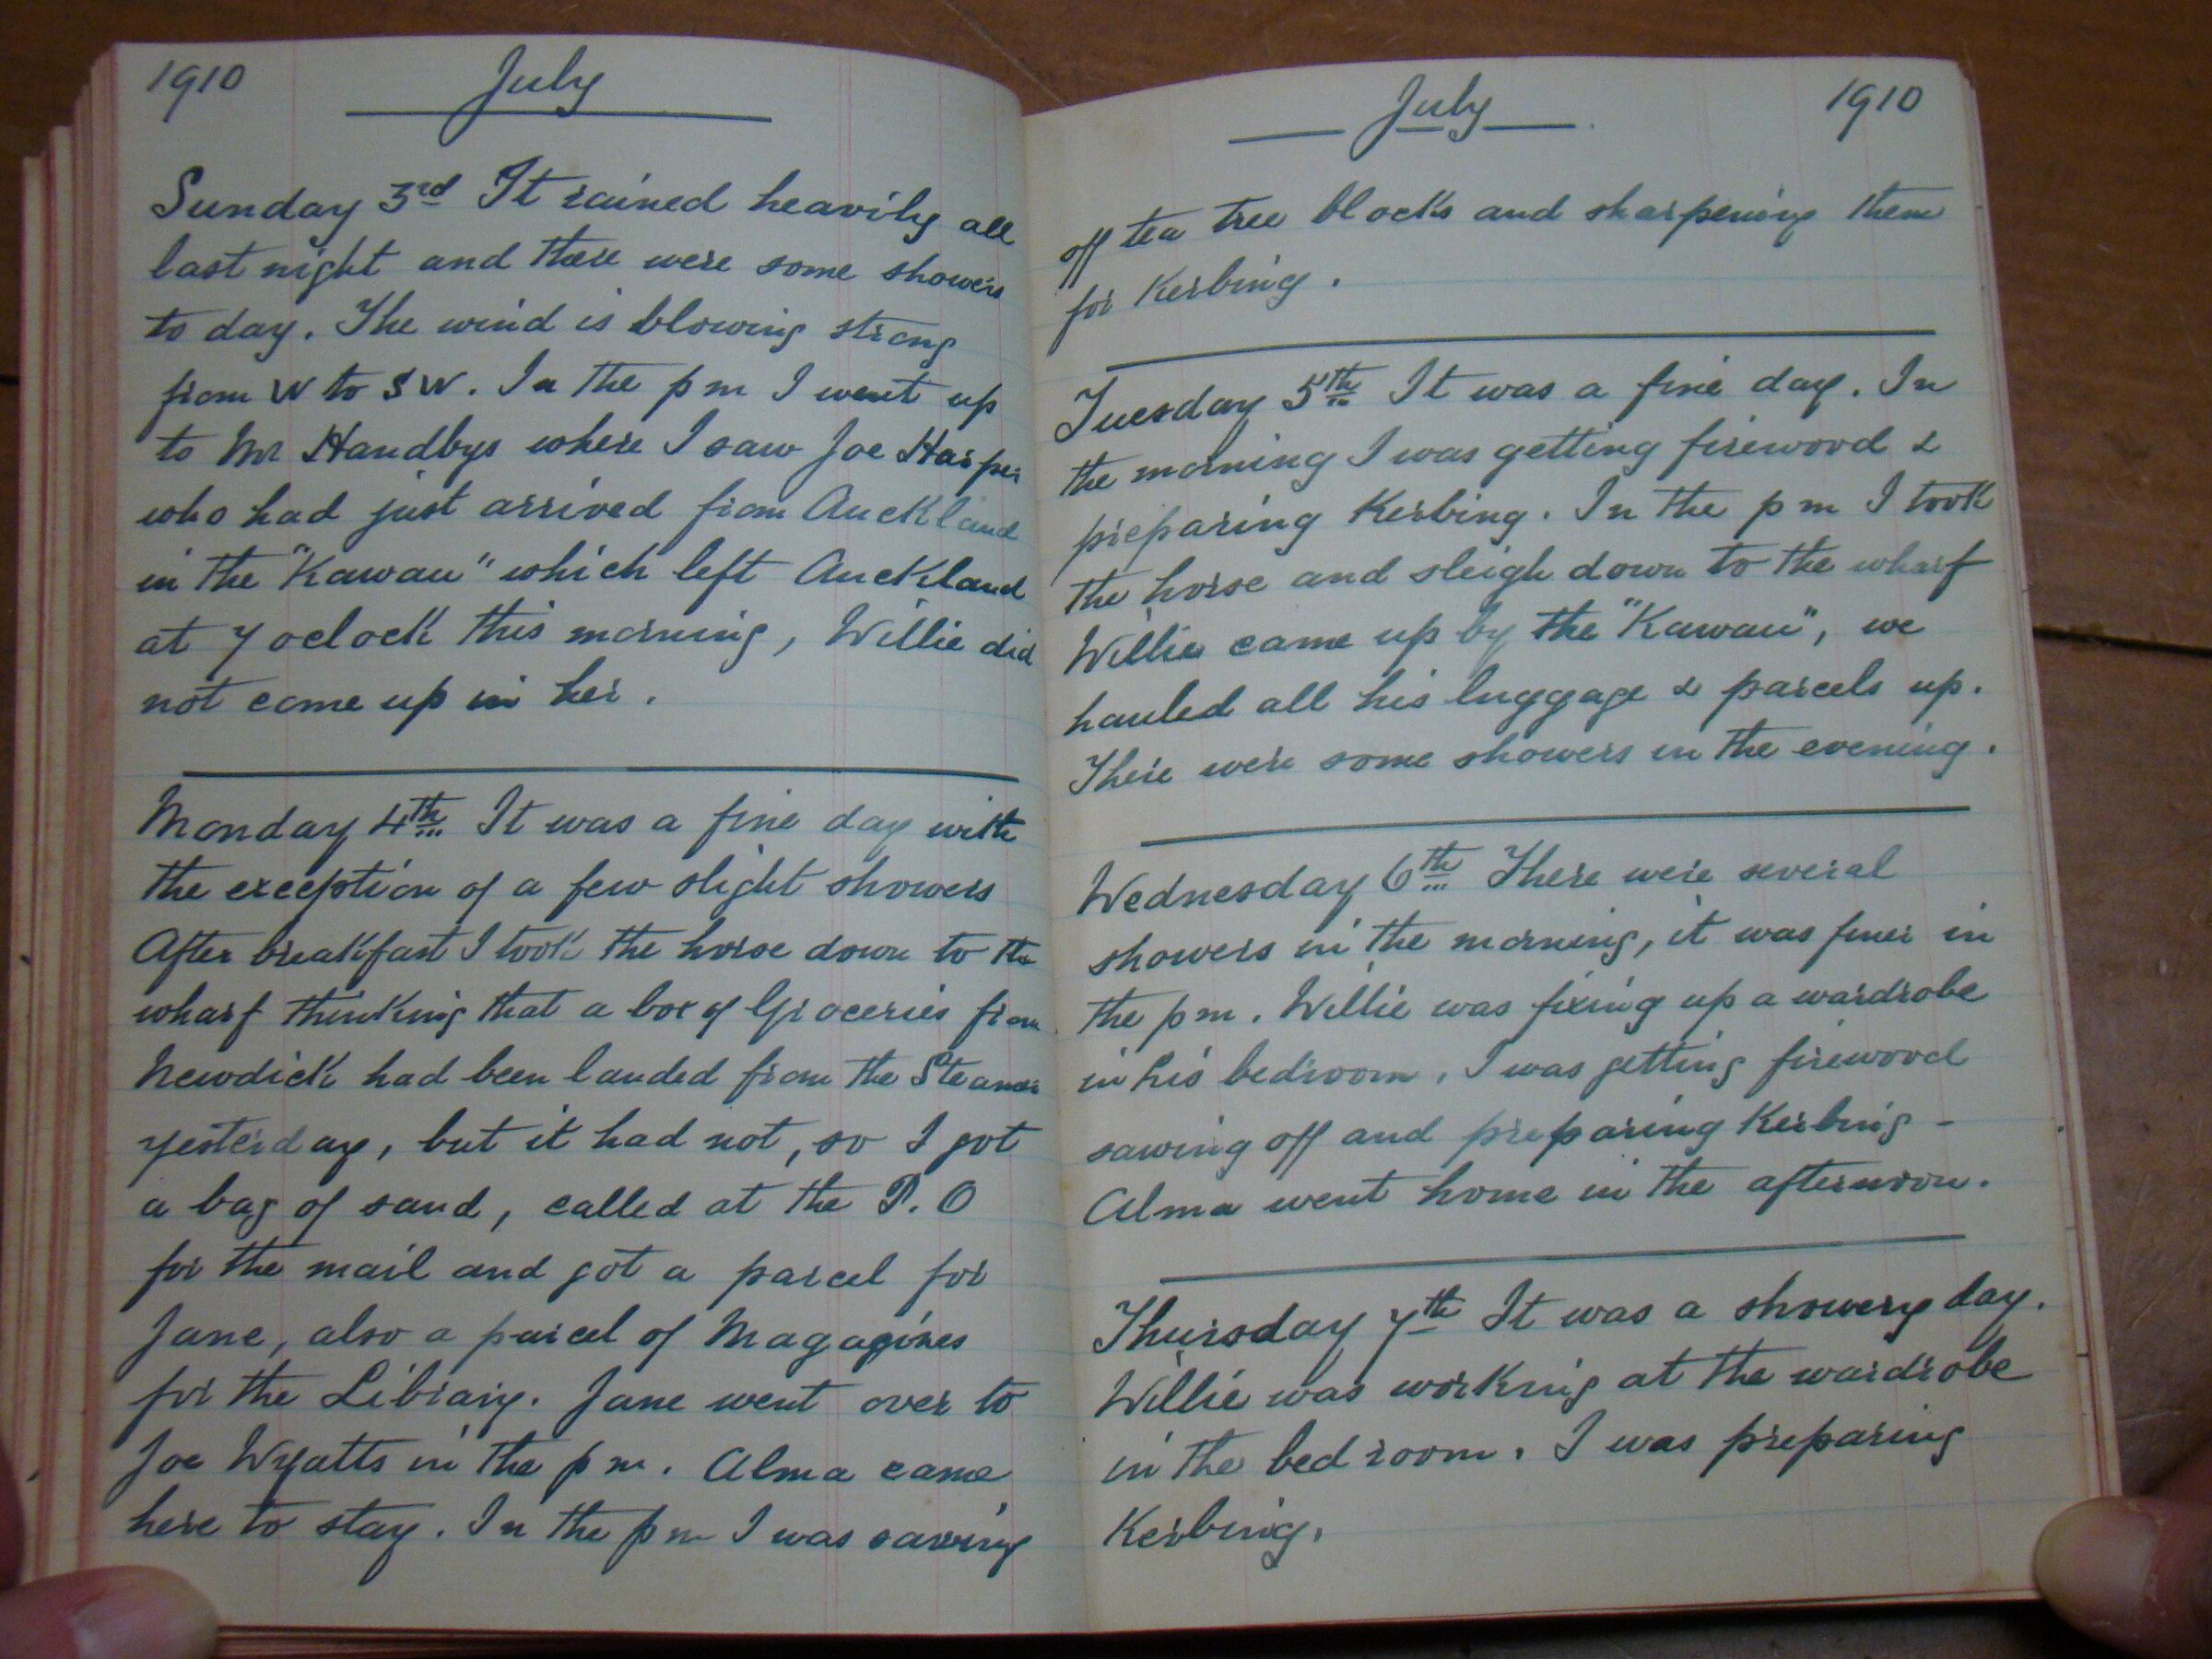 1910 July
Sunday 3rd It rained heavily all
last night and there were some showers
to day. The wind is blowing strong
from W to SW. In the pm I went up
to Mr Handbys where I saw Joe Harper
who had just arrived from Auckland
in the "Kawau" which left Auckland
at 7 oclock this morning, Willie did
not come up in her.
Monday 4th It was a fine day with
the exception of a few slight showers
After breakfast I took the horse down to the
wharf thinking that a box of Groceries from
Newdick had been landed from the Steamer
yesterday, but it had not, so I got
a bag of sand, called at the P.O
for the mail and got a parcel for
Jane, also a parcel of Magazines
for the Library. Jane went over to
Joe Wyatts in the pm. Alma came
here to stay. In the pm I was sawing
July 1910
off tea tree blocks and sharpening them
for Kerbing.
Tuesday 5th It was a fine day. In
the morning I was getting firewood &
preparing Kerbing. In the pm I took
the horse and sleigh down to the wharf
Willie came up by the "Kawau", we
hauled all his luggage & parcels up.
There were some showers in the evening.
Wednesday 6th There were several
showers in the morning, it was finer in
the pm. Willie was fixing up a wardrobe
in his bedroom. I was getting firewood
sawing off and preparing Kerbing -
Alma went home in the afternoon.
Thursday 7th It was a showery day.
Willie was working at the wardrobe
in the bed room. I was preparing
Kerbing.